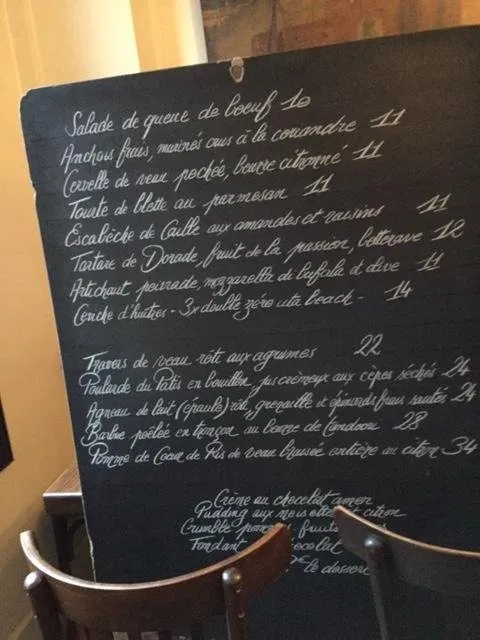 Salade de queue de boeuf 10
Anchois frais, marinés crus à la coriandre 11
Cervelle de veau pochée, beurre citronné 11
Tourte de blette au parmesan 11
Escabèche de Caille aux amandes et raisins 11
Tartare de Dorade, fruit de la passion, betterave 12
Artichaut poivrade, mozzarella di bufala et olive 11
Ceviche d'huîtres - 3x double zéro uta beach - 14
Travers de veau rôti aux agrumes 22
Poularde du Patis en bouillon, jus crémeux aux cèpes séchés 24
Agneau de lait (épaule) rôti, grenaille et épinards frais sautés 24
Barbue poêlée en tronçon au beurre de 28
Pomme de Coeur de Ris de veau braisée entière au citron 34
Crème au chocolat amer
Pudding aux noisettes et citron
Crumble fruits
Fondant
le dessert